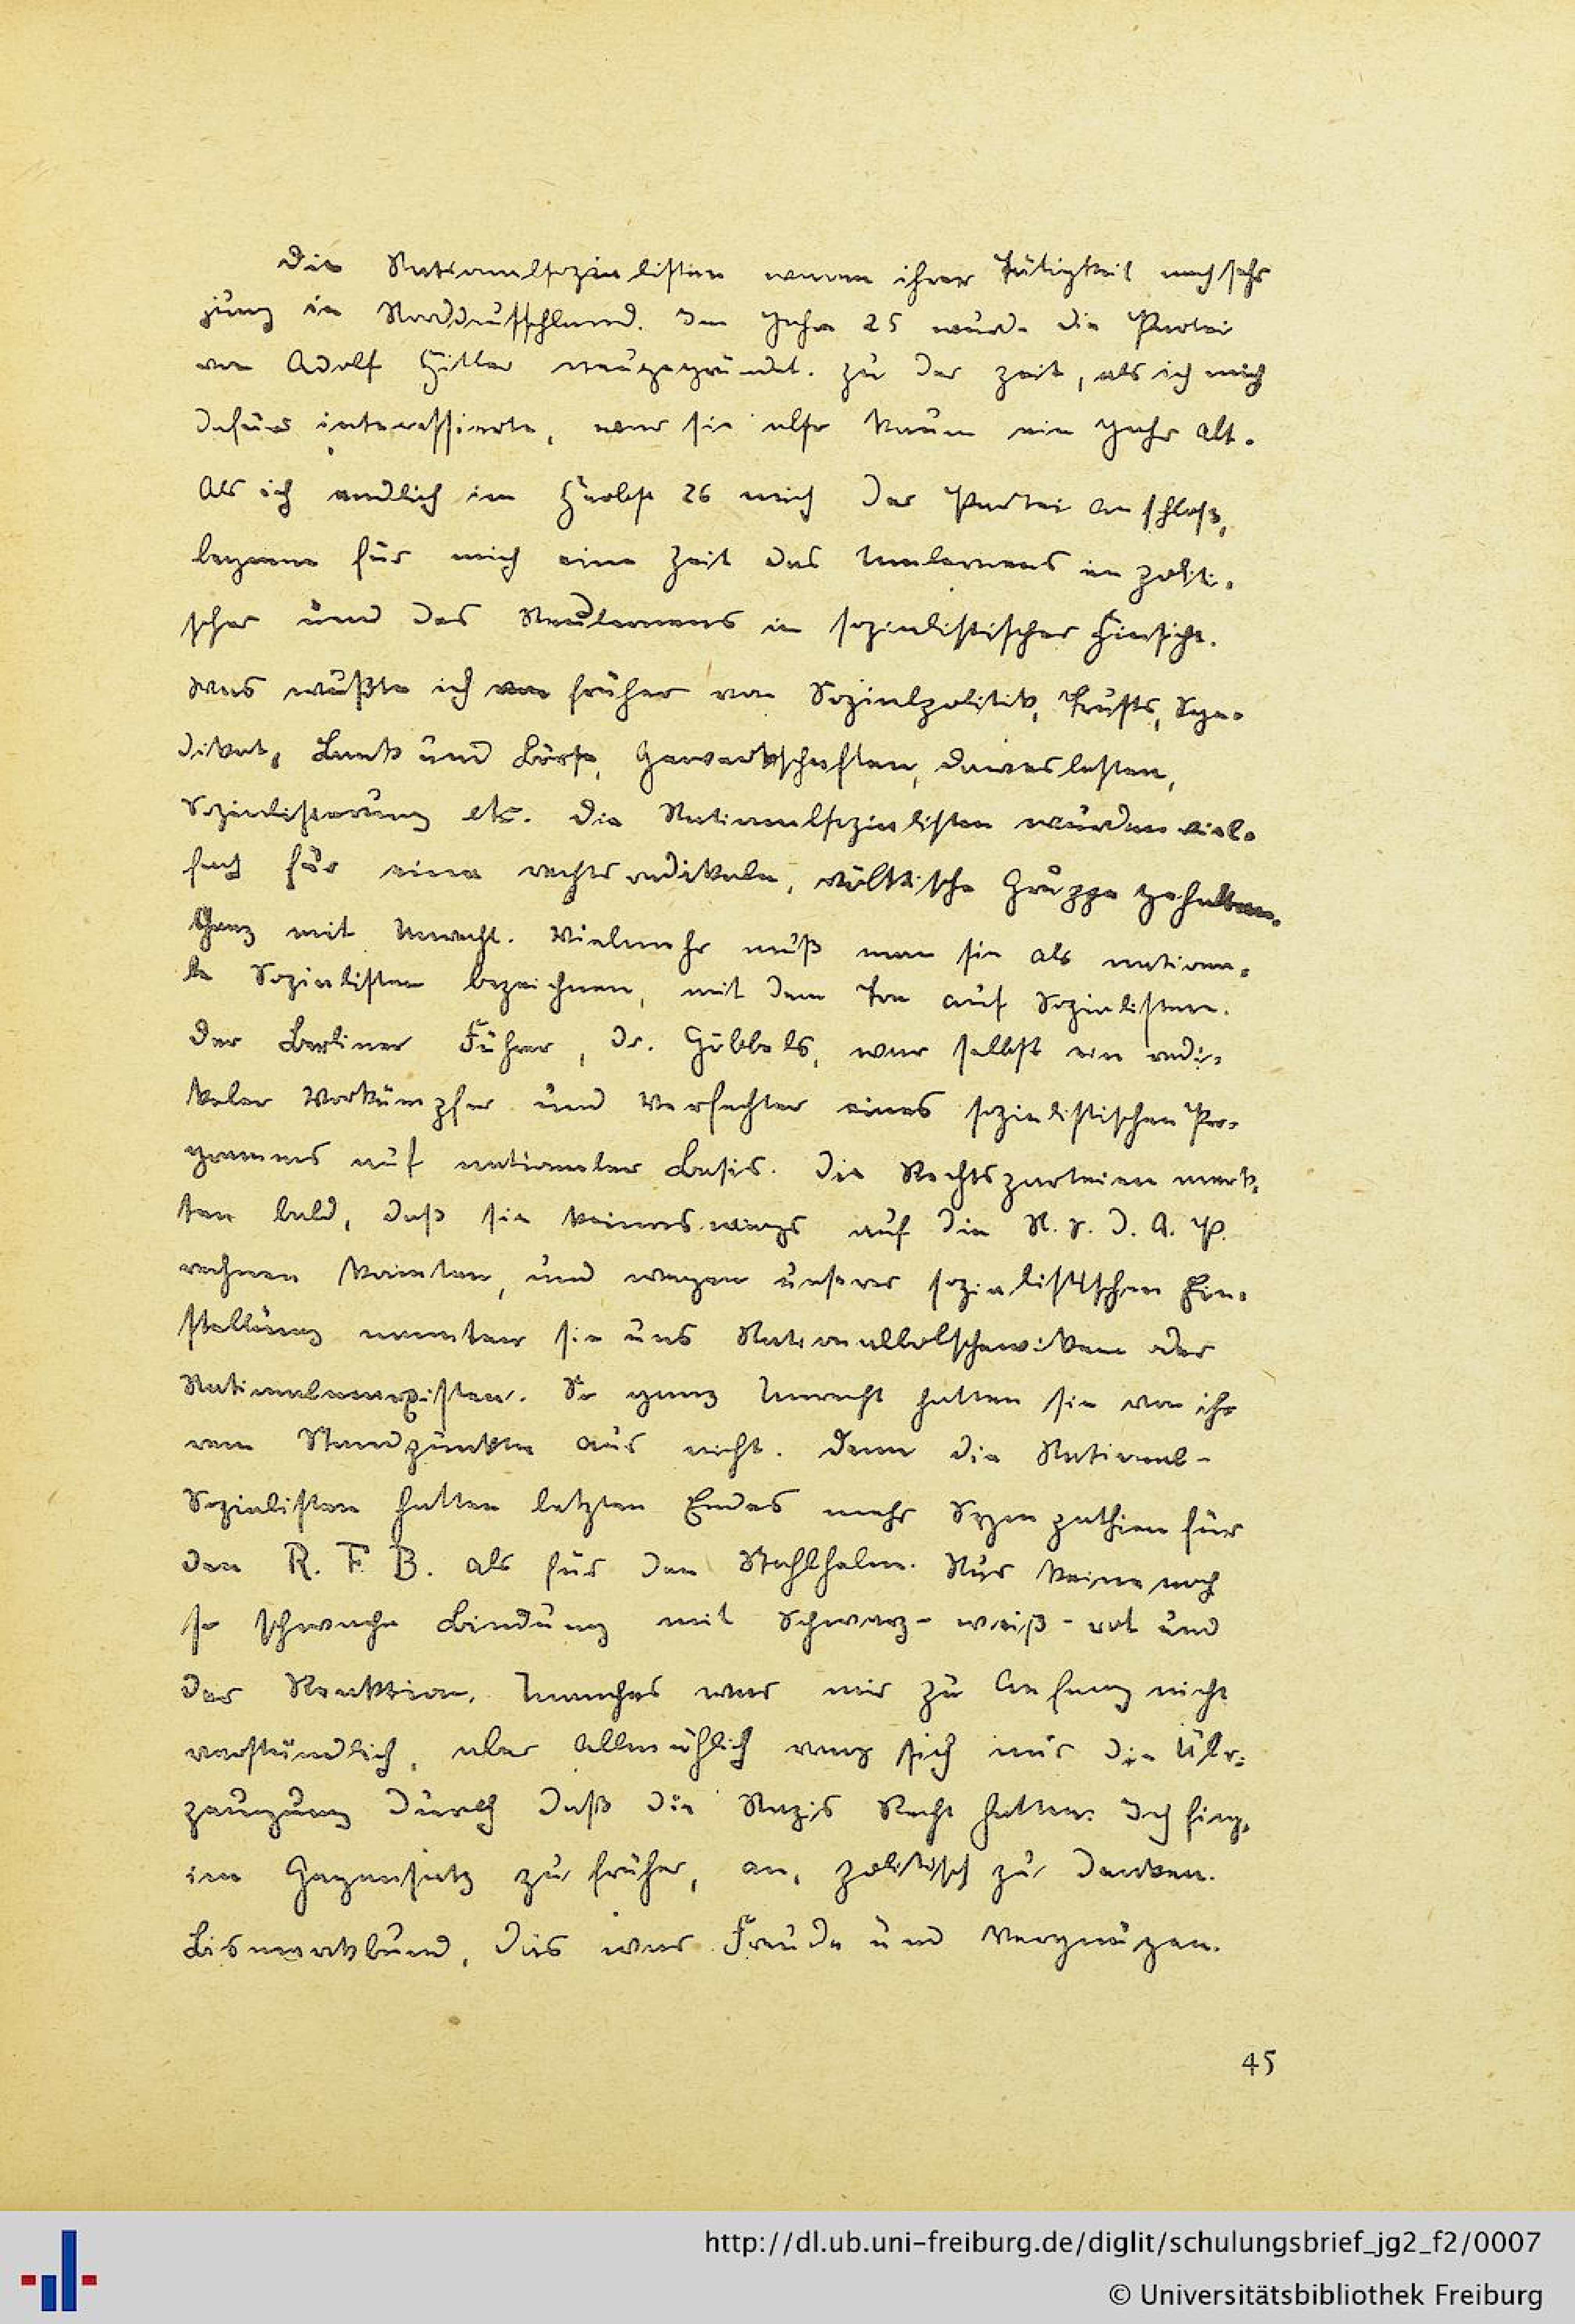 Die Nationalsozialisten waren ihrer Tätigkeit nach sehr
jung in Norddeutschland. Im Jahre 25 wurde die Partei
von Adolf Hitler neugegründet. Zu der Zeit, als ich mich
dafür interessierte, war sie also kaum ein Jahr alt.
Als ich endlich im Herbst 26 mich der Partei anschloß,
begann für mich eine Zeit des Umlernens in politi-
scher und des Neulernens in sozialistischer Hinsicht.
Was wußte ich von früher von Sozialpolitik, Trusts, Syn-
dikat, Bank und Börse, Gewerkschaften, Daweslasten,
Sozialisierung etc. Die Nationalsozialisten wurden viel-
fach für eine rechtsradikale, völkische Gruppe gehalten.
Ganz mit Unrecht. Vielmehr muß man sie als nationa-
le Sozialisten bezeichnen, mit dem Ton auf Sozialisten.
Der Berliner Führer, Dr. Göbbels, war selbst ein radi-
kaler Vorkämpfer und Verfechter eines sozialistischen Pro-
gramms auf nationaler Basis. Die Rechtsparteien merk-
ten bald, daß sie keineswegs auf die N. S. D. A. P.
rechnen konnten, und wegen unserer sozialistischen Ein-
stellung nannten sie uns Nationalbolschewiken oder
Nationalmarxisten. So ganz Unrecht hatten sie von ih-
rem Standpunkte aus nicht. Denn die National-
Sozialisten hatten letzten Endes mehr Sympathien für
den R. F. B. als für den Stahlhelm. Nur keine noch
so schwache Bindung mit Schwarz-weiß-rot und
der Reaktion. Manches war mir zu Anfang nicht
verständlich, aber allmählich rang sich mir die Über-
zeugung durch daß die Nazis Recht hatten. Ich fing,
im Gegensatz zu früher, an, politisch zu denken.
Bismarckbund, das war Freude und Vergnügen.
45
http://dl.ub.uni-freiburg.de/diglit/schulungsbrief_jg2_f2/0007
© Universitätsbibliothek Freiburg